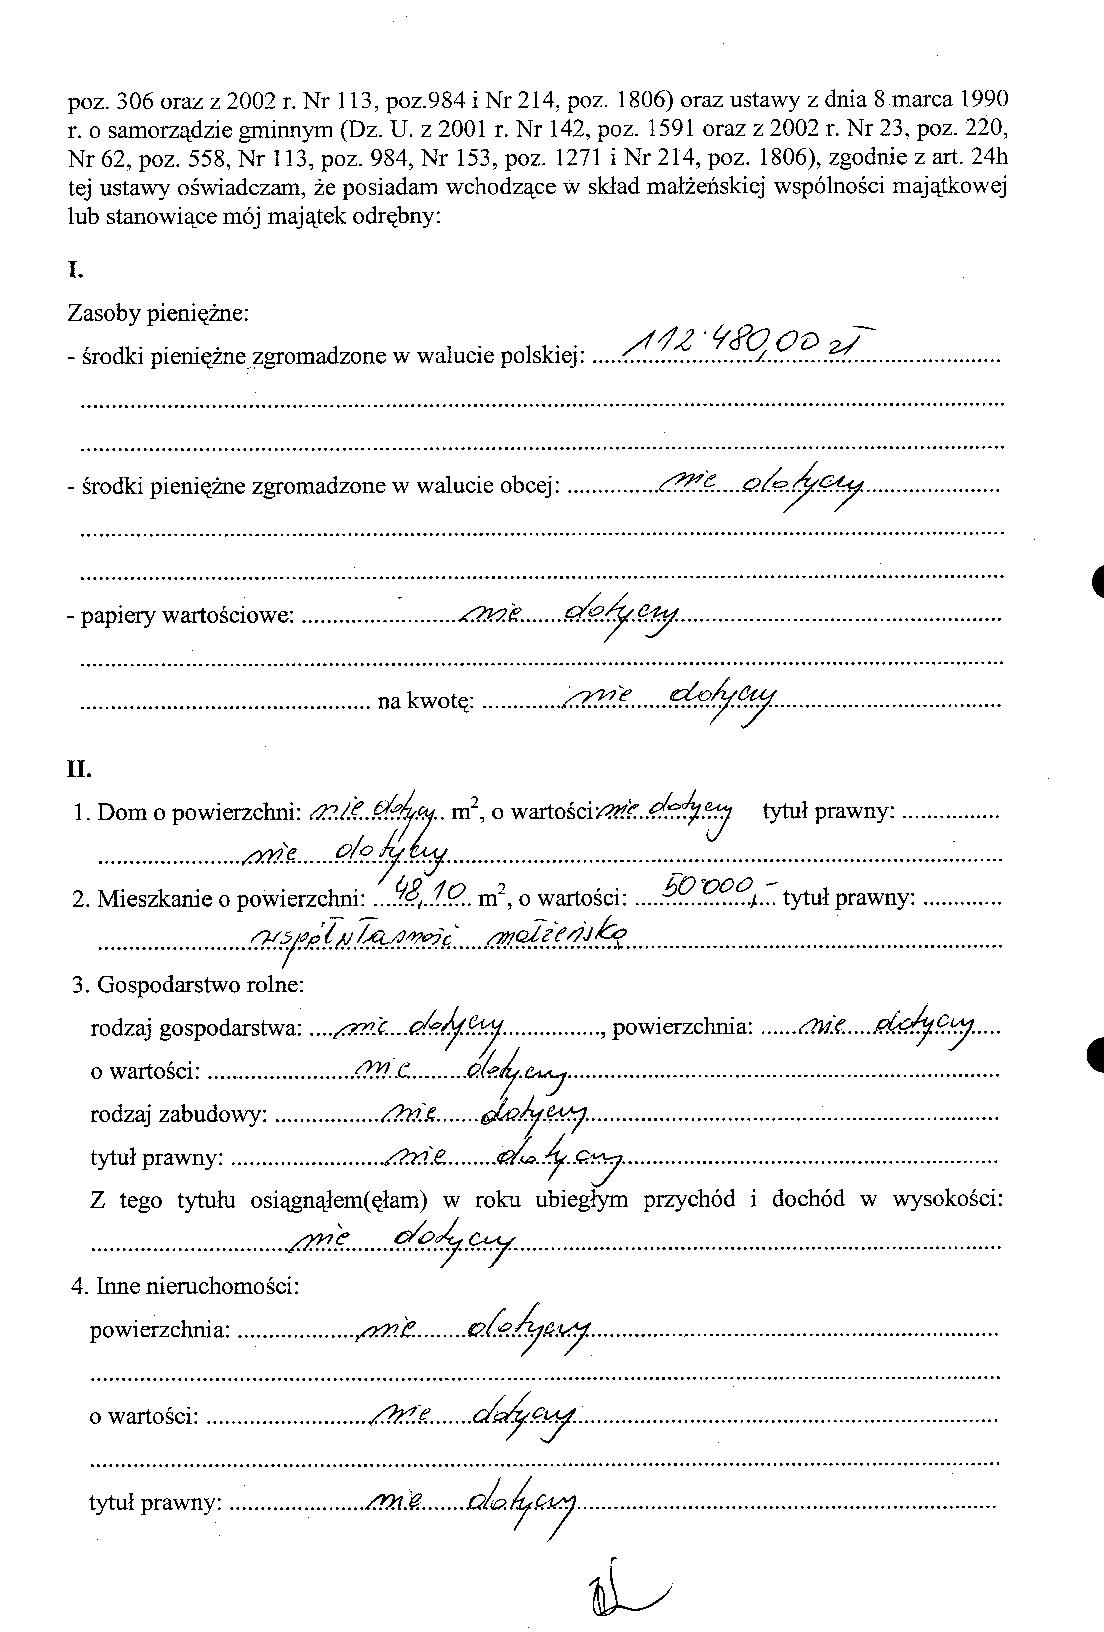 poz. 306 oraz z 2002 r. Nr 113, poz.984 i Nr 214, poz. 1806) oraz ustawy z dnia 8 marca 1990
r. o samorządzie gminnym (Dz. U. z 2001 r. Nr 142, poz. 1591 oraz z 2002 r. Nr 23, poz. 220,
Nr 62, poz. 558, Nr 113, poz. 984, Nr 153, poz. 1271 i Nr 214, poz. 1806), zgodnie z art. 24h
tej ustawy oświadczam, że posiadam wchodzące w skład małżeńskiej wspólności majątkowej
lub stanowiące mój majątek odrębny:
I.
Zasoby pieniężne:
- środki pieniężne zgromadzone w walucie polskiej: 112.480,00 zł
- środki pieniężne zgromadzone w walucie obcej: nie dotyczy
- papiery wartościowe: nie dotyczy
na kwotę: nie dotyczy
II.
1. Dom o powierzchni: nie dotyczy m², o wartości: nie dotyczy tytuł prawny:
nie dotyczy
2. Mieszkanie o powierzchni: 48,10 m², o wartości: 50.000,- tytuł prawny:
współwłasność małżeńska
3. Gospodarstwo rolne:
rodzaj gospodarstwa: nie dotyczy, powierzchnia: nie dotyczy
o wartości: nie dotyczy
rodzaj zabudowy: nie dotyczy
tytuł prawny: nie dotyczy
Z tego tytułu osiągnąłem(ęłam) w roku ubiegłym przychód i dochód w wysokości:
nie dotyczy
4. Inne nieruchomości:
powierzchnia: nie dotyczy
o wartości: nie dotyczy
tytuł prawny: nie dotyczy